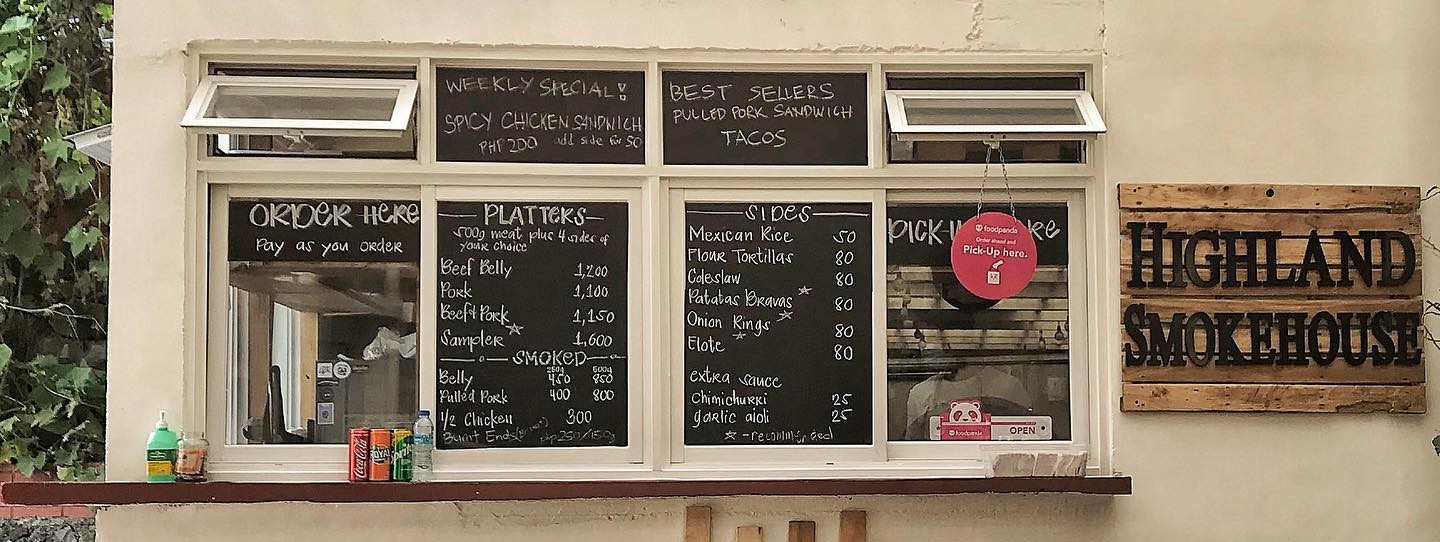 WEEKLY SPECIAL!
SPICY CHICKEN SANDWICH
PHP 200 add side for 50
BEST SELLERS
PULLED PORK SANDWICH
TACOS
ORDER HERE
Pay as you order
PLATTERS
500g meat plus 4 sides of
your choice
Beef Belly 1,200
Pork 1,100
Beef & Pork 1,150
Sampler 1,600
SMOKED
250g 500g
Belly 450 850
Pulled Pork 400 800
1/2 Chicken 300
Burnt Ends 250/150g
SIDES
Mexican Rice 50
Flour Tortillas 80
Coleslaw 80
Patatas Bravas 80
Onion Rings 80
Elote 80
extra sauce
Chimichurri 25
garlic aioli 25
- recommended
PICK-
RE
foodpanda
Order ahead and
Pick-Up here.
foodpanda OPEN
HIGHLAND
SMOKEHOUSE
Coca-Cola
ROYAL
Sprite